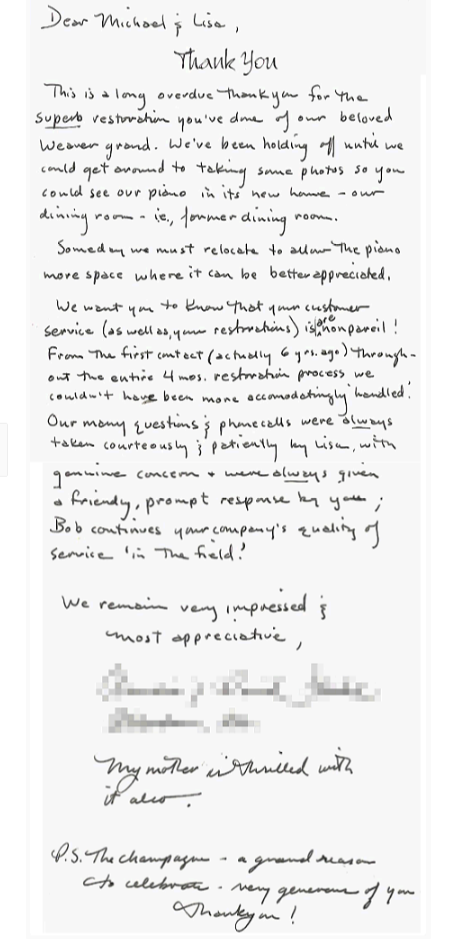 Dear Michael & Lisa,
Thank You
This is a long overdue thank you for the
superb restoration you've done of our beloved
Weaver grand. We've been holding off until we
could get around to taking some photos so you
could see our piano in its new home – our
dining room – ie., former dining room.
Someday we must relocate to allow the piano
more space where it can be better appreciated.
We want you to know that your customer
service (as well as, your restorations) is/are nonpareil!
From the first contact (actually 6 yrs. ago) through-
out the entire 4 mos. restoration process we
couldn't have been more accomodatingly handled.
Our many questions & phonecalls were always
taken courteously & patiently by Lisa, with
genuine concern & were always given
a friendly, prompt response by you;
Bob continues your company's quality of
service 'in the field.'
We remain very impressed &
most appreciative,
My mother is thrilled with
it also.
P.S. The champagne – a grand reason
to celebrate – very generous of you
Thankyou!